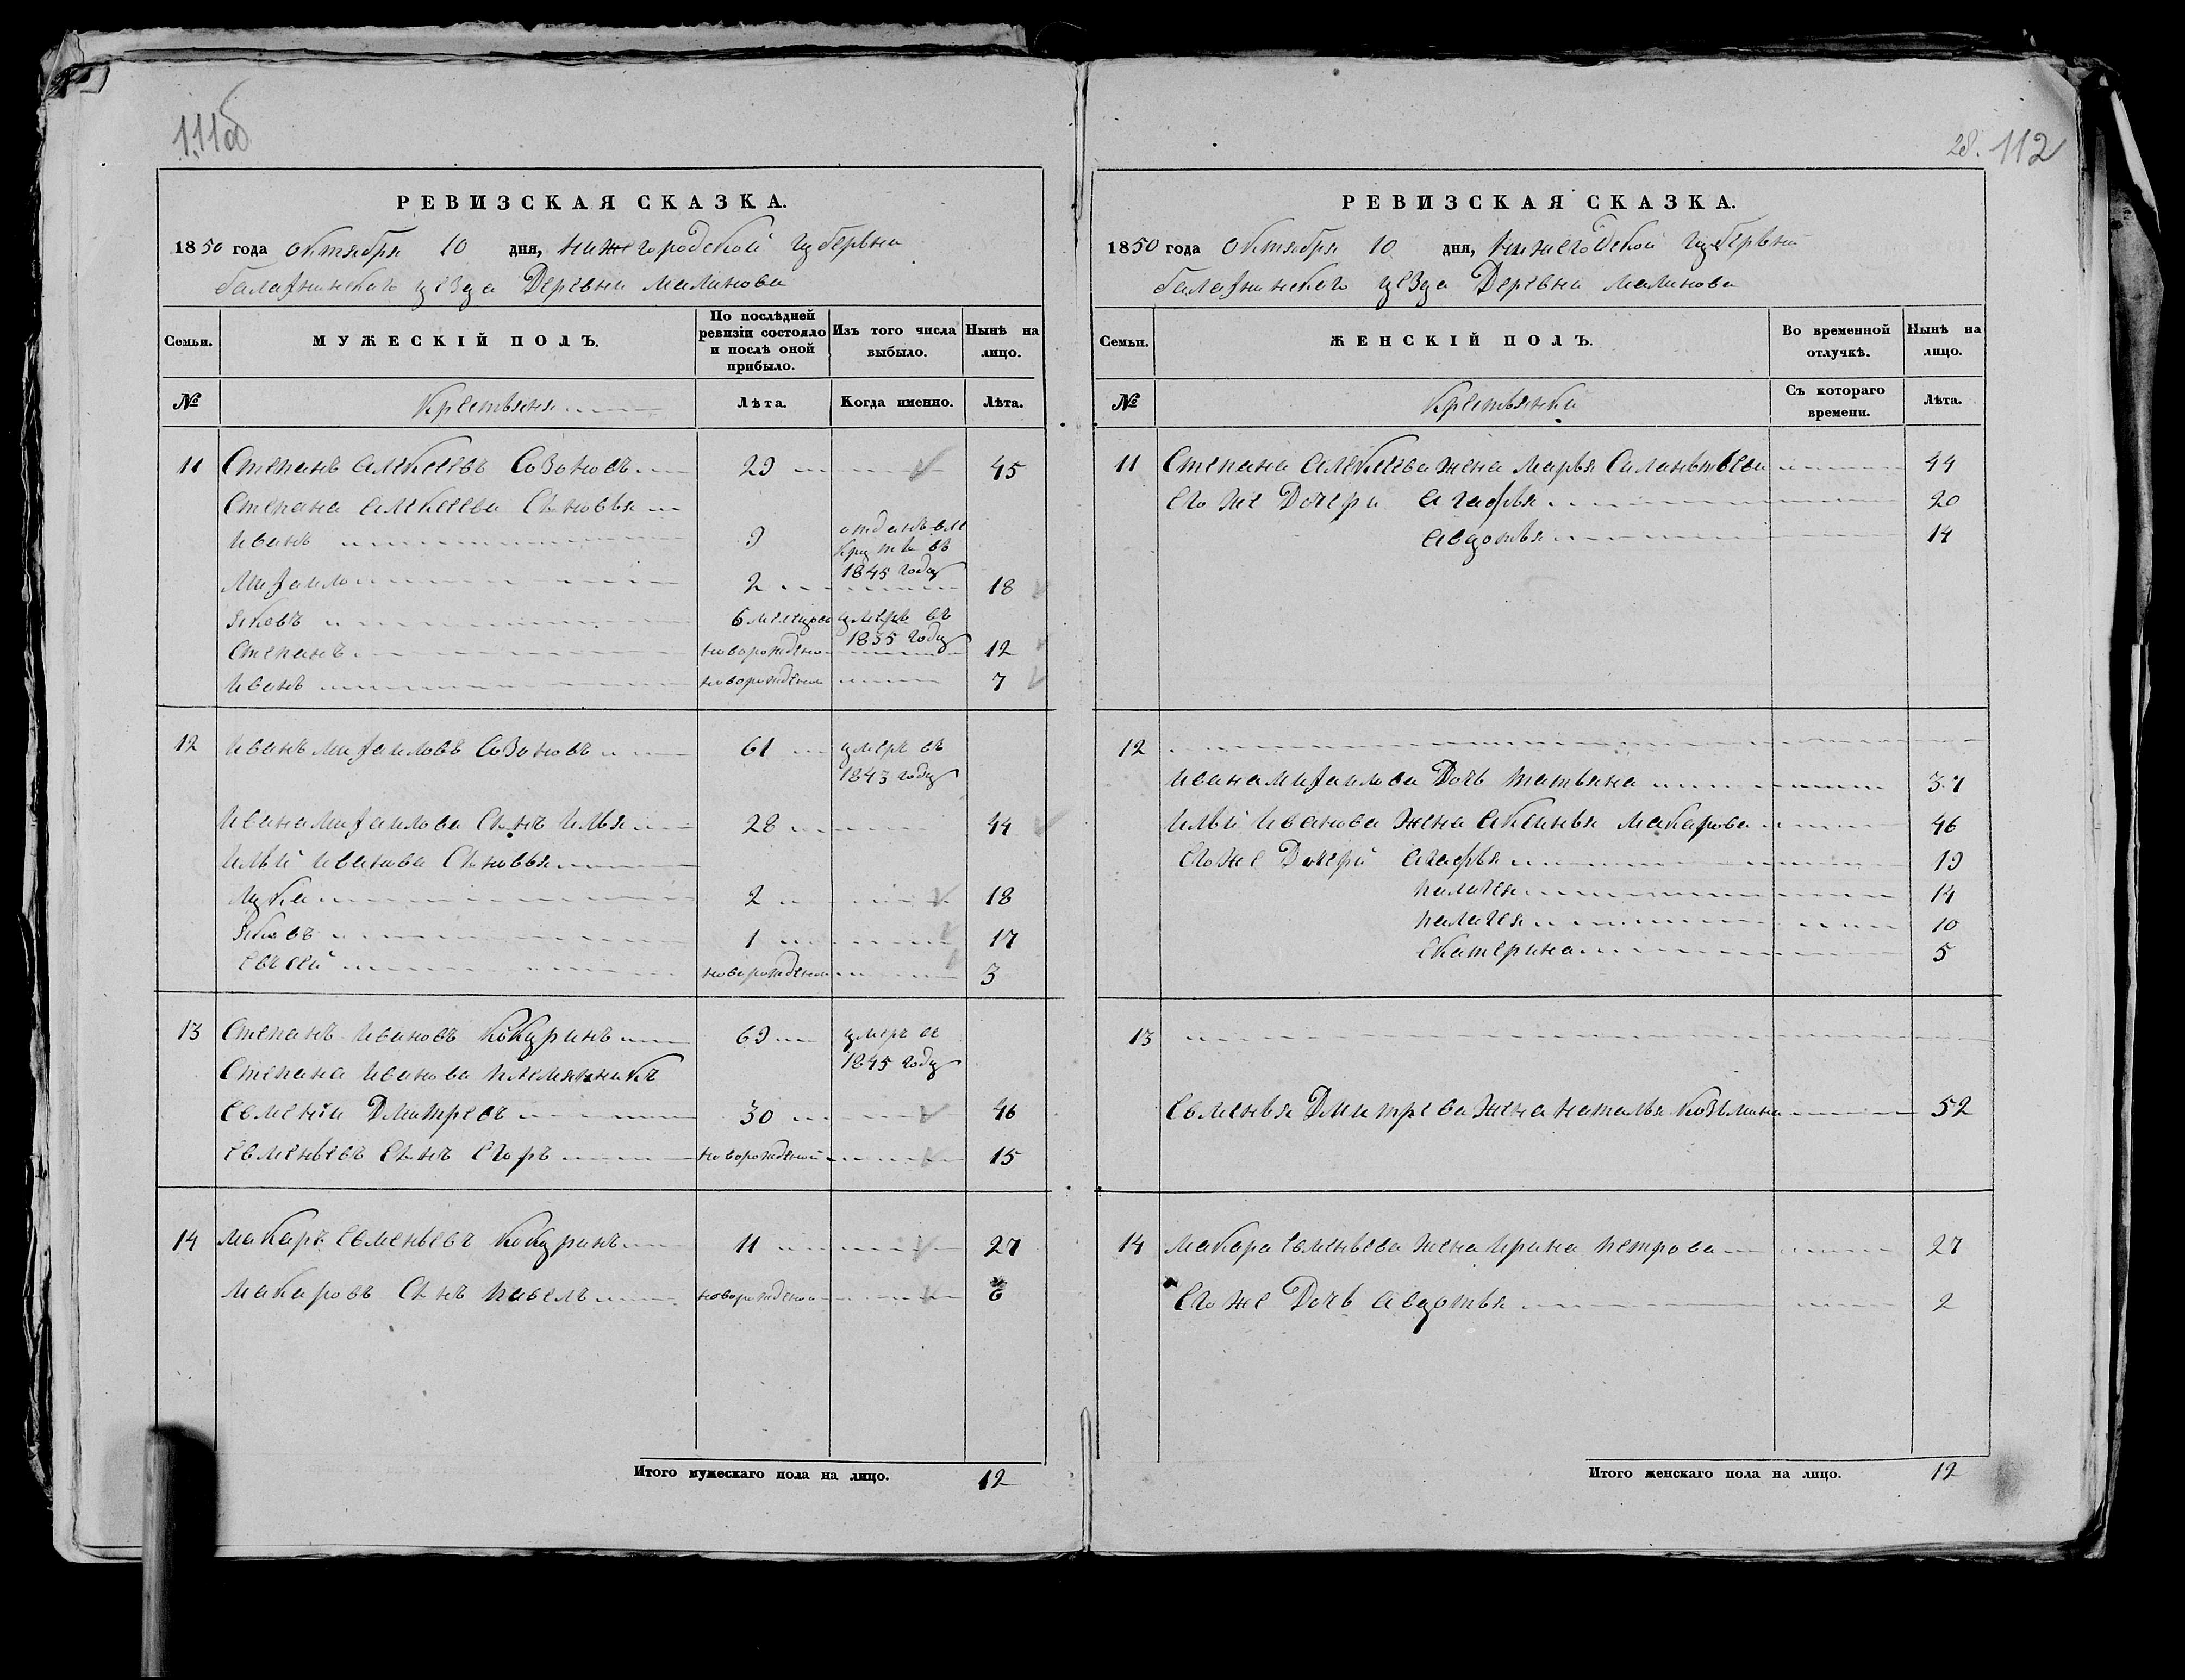 111об
РЕВИЗСКАЯ СКАЗКА.
1850 года октября 10 дня, нижегородской губервни
балахнинскаго уезда Деревни малинова
Семьи.
МУЖЕСКІЙ ПОЛЪ.
По послѣдней ревизіи состояло и послѣ оной прибыло.
Изъ того числа выбыло.
Нынѣ на лицо.
№
Крестьяня
Лѣта.
Когда именно.
Лѣта.
11 Степанъ алексеевъ Созоновъ 29 45
Степана алексеева Сыновья
иванъ 9 отданъ въ 1845 году
михаило 2 18
яковъ 6 месецовъ умеръ въ 1835 году
Степанъ новорожденои 12
иванъ новорожденои 7
12 иванъ михаиловъ Созоновъ 61 умеръ въ 1843 году
ивана михаилова Сынъ илья 28 44
ильи иванова Сыновья
лука 2 18
яковъ 1 17
евсей новорожденои 3
13 Степанъ ивановъ кокуринъ 69 умеръ въ 1845 году
Степана иванова племянникъ
евменій Дмитревъ 30 46
евменьевъ Сынъ егоръ новорожденой 15
14 макаръ евменьевъ кокуринъ 11 27
макаровъ Сынъ павелъ новорожденои 6
Итого мужескаго пола на лицо. 12
28. 112
РЕВИЗСКАЯ СКАЗКА.
1850 года октября 10 дня, нижегодской губервни
балахнинскаго уезда Деревни малинова
Семьи.
ЖЕНСКІЙ ПОЛЪ.
Во временной отлучкѣ.
Нынѣ на лицо.
№
Крестьянки
Съ котораго времени.
Лѣта.
11 Степана алексеева жена марья 44
его же Дочери агафья 20
авдотья 14
12
ивана михаилова Дочь татьяна 37
ильи иванова жена аксинья макарова 46
его же Дочери агафья 19
палагея 14
палагея 10
екатерина 5
13
евменья Дмитрева жена наталья козьмина 52
14 макара евменьева жена ирина петрова 27
его же Дочь авдотья 2
Итого женскаго пола на лицо. 12